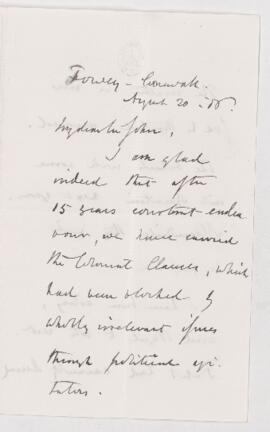 Fowey - Cornwall.
August 20
My dear Sir John,
I am glad
indeed that after
15 years constant endea
vour, we have carried
the Clauses, which
had been blocked by
wholly irrelevant issues
through political agi-
tators.